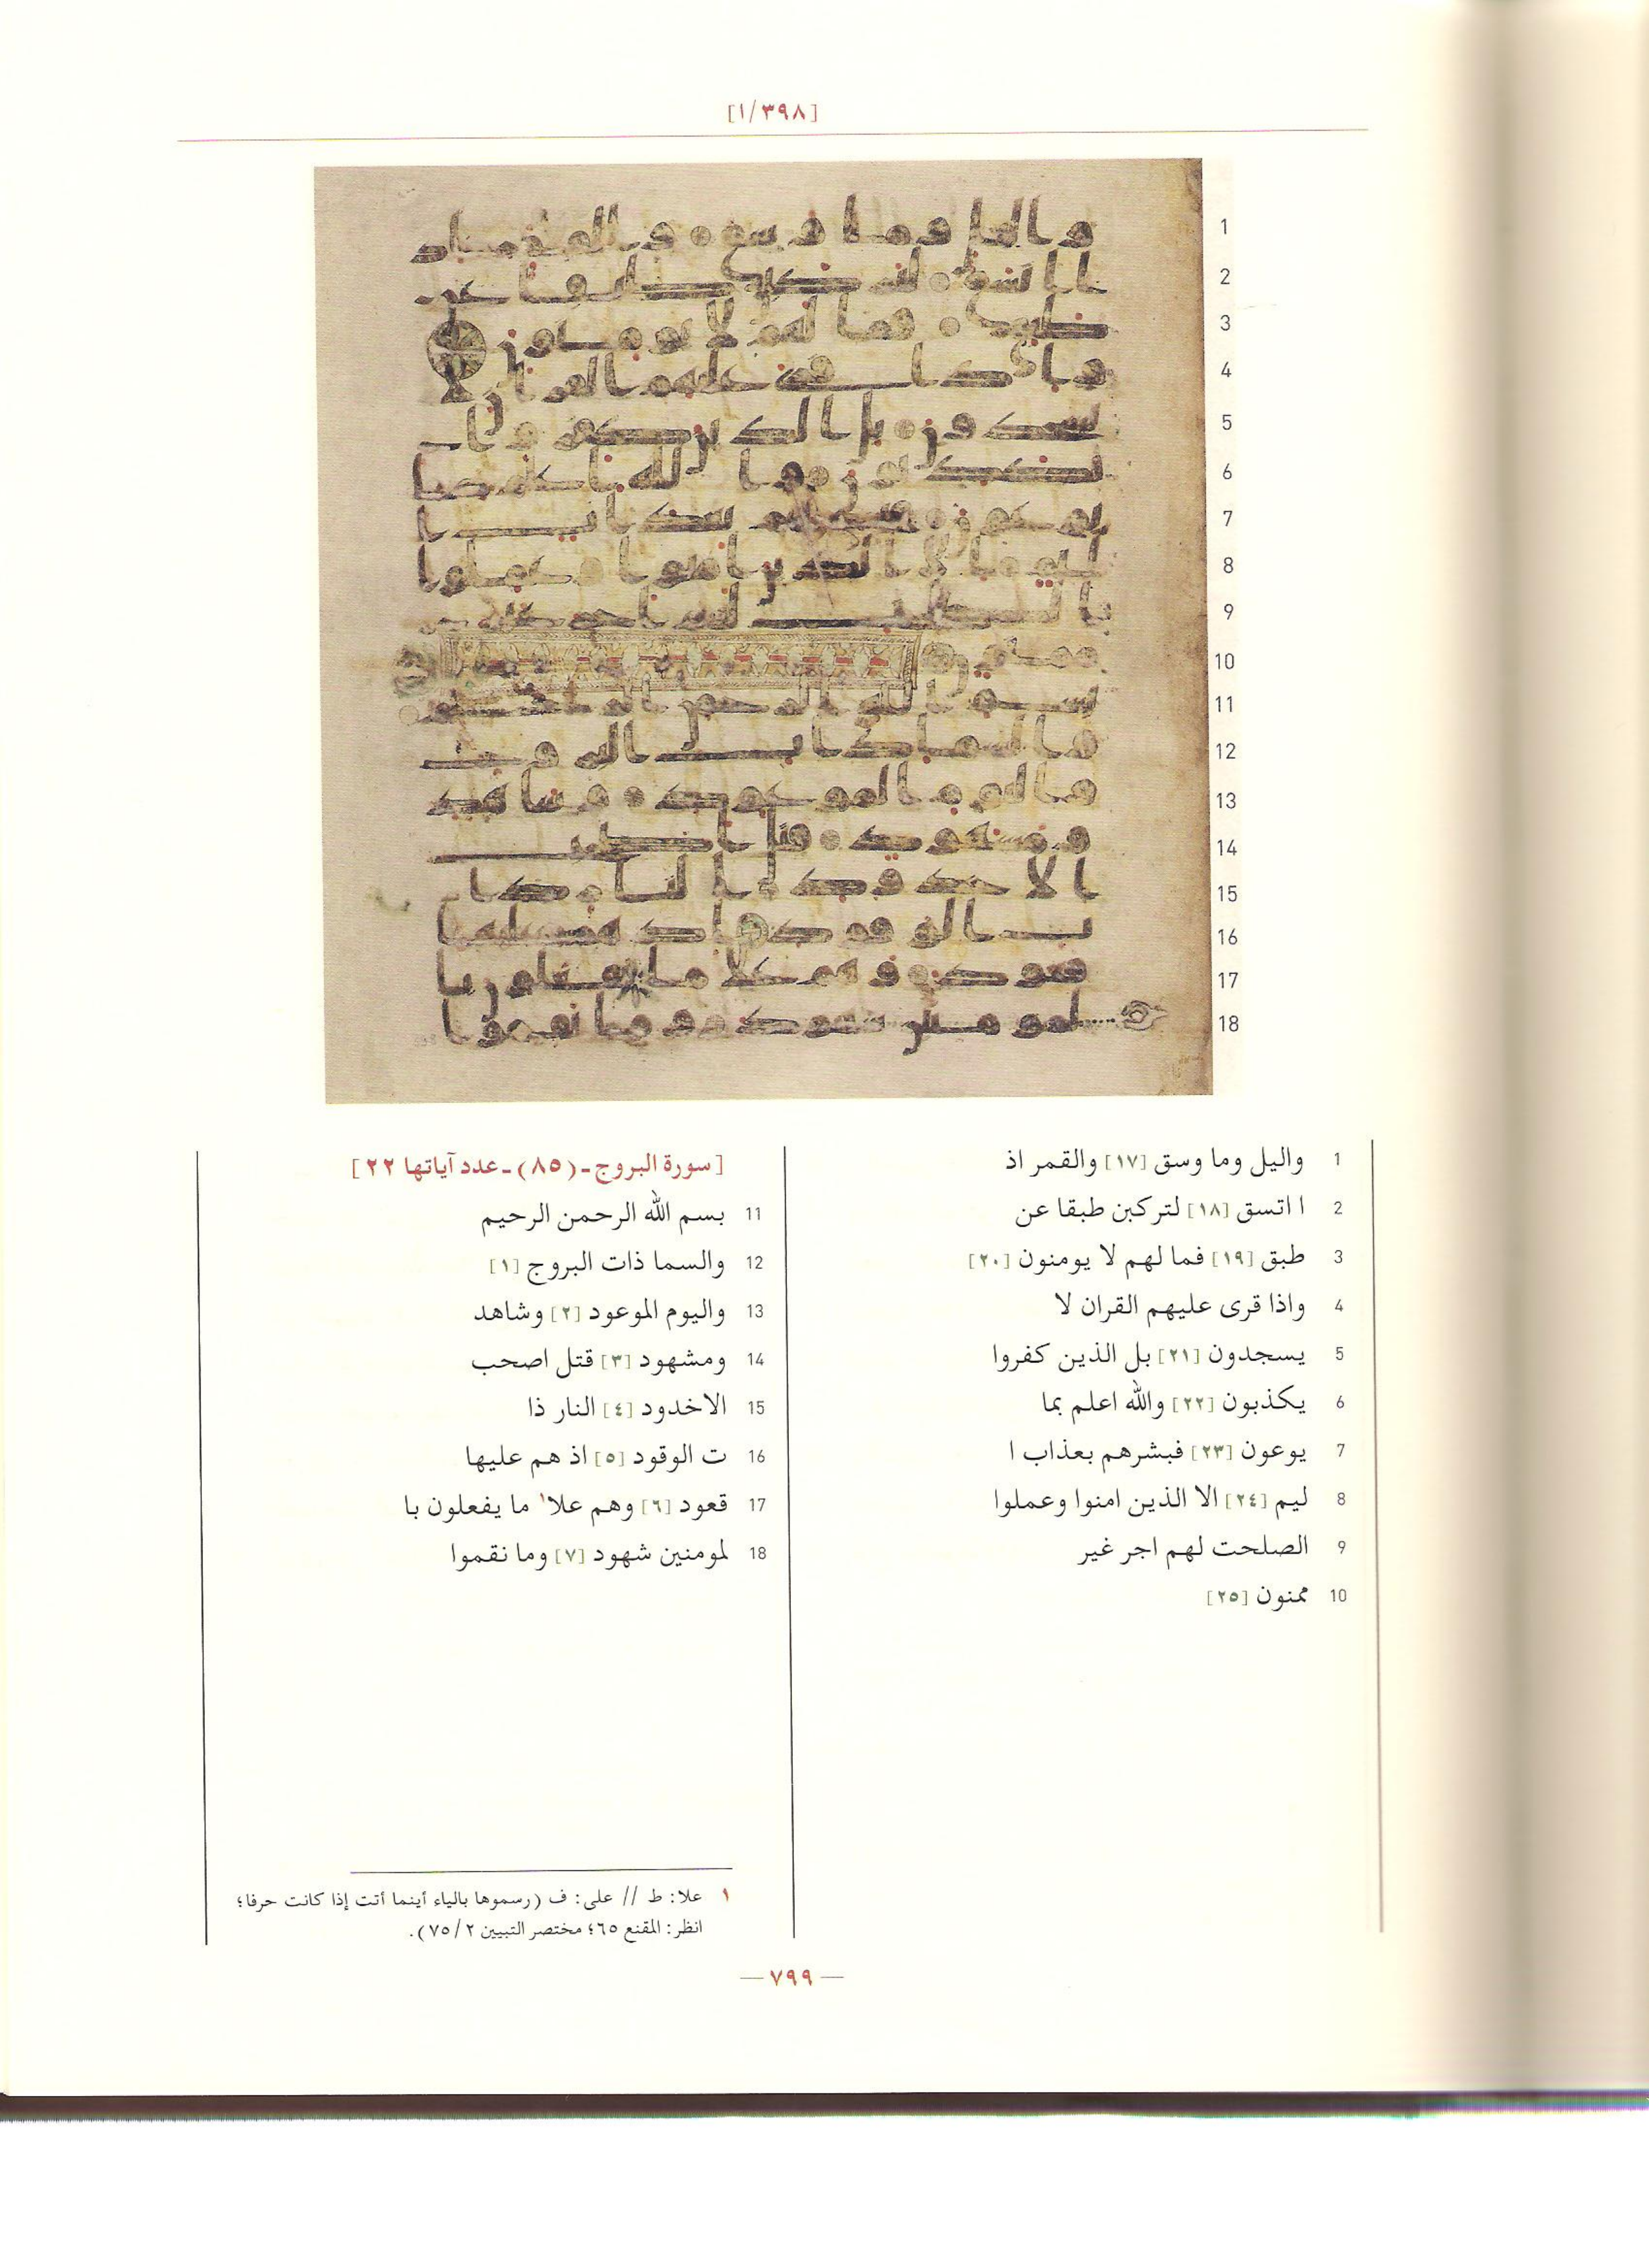 [١/٣٩٨]
1 واليل وما وسق [١٧] والقمر اذ
2 ا اتسق [١٨] لتركبن طبقا عن
3 طبق [١٩] فما لهم لا يومنون [٢٠]
4 واذا قرى عليهم القران لا
5 يسجدون [٢١] بل الذين كفروا
6 يكذبون [٢٢] والله اعلم بما
7 يوعون [٢٣] فبشرهم بعذاب ا
8 ليم [٢٤] الا الذين امنوا وعملوا
9 الصلحت لهم اجر غير
10 ممنون [٢٥]
[سورة البروج-(٨٥)-عدد آياتها ٢٢]
11 بسم الله الرحمن الرحيم
12 والسما ذات البروج [١]
13 واليوم الموعود [٢] وشاهد
14 ومشهود [٣] قتل اصحب
15 الاخدود [٤] النار ذا
16 ت الوقود [٥] اذ هم عليها
17 قعود [٦] وهم علا١ ما يفعلون با
18 لمومنين شهود [٧] وما نقموا
١ علا: ط // على: ف (رسموها بالياء أينما أتت إذا كانت حرفا؛
انظر: المقنع ٦٥؛ مختصر التبيين ٧٥/٢).
— ٧٩٩ —